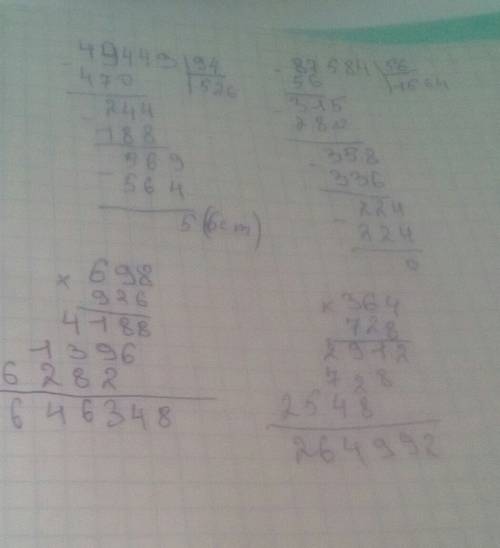 49449 | 94
- 470 | 526
244
- 188
569
- 564
5 (ост)
- 87584 | 56
56 | 1564
315
- 280
358
- 336
224
- 224
0
× 698
926
4188
1396
6282
646348
× 364
728
2912
728
2548
264992